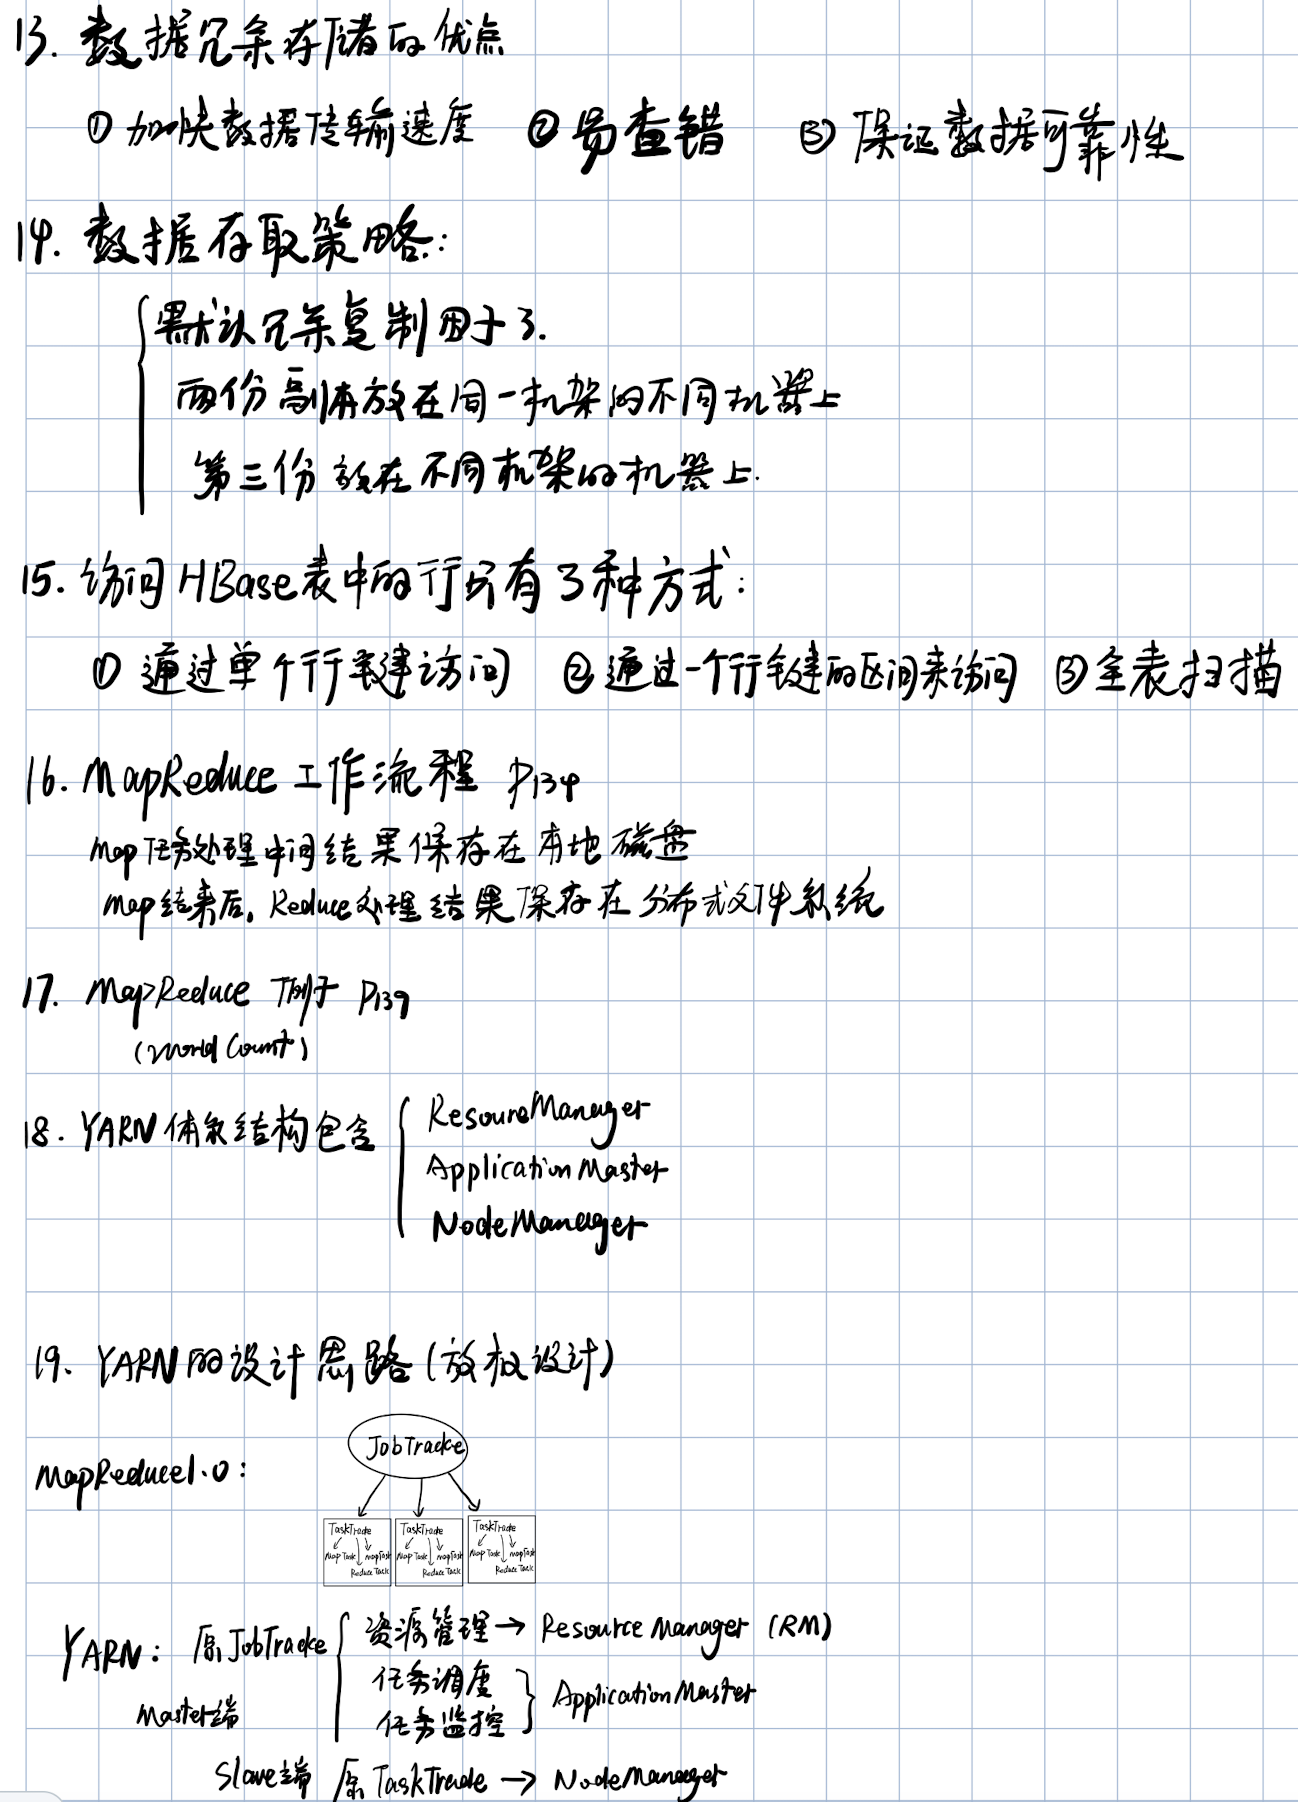 13. 数据冗余存储的优点
① 加快数据传输速度 ② 易查错 ③ 保证数据可靠性
14. 数据存取策略:
默认冗余复制因子3.
两份副本放在同一机架的不同机器上
第三份放在不同机架的机器上.
15. 访问HBase表中的行只有3种方式:
① 通过单个行键访问 ② 通过一个行键的区间来访问 ③ 全表扫描
16. MapReduce 工作流程 P134
Map任务处理中间结果保存在本地磁盘
Map结束后, Reduce处理结果保存在分布式文件系统
17. MapReduce 例子 P139
(World Count)
18. YARN体系结构包含
ResourceManager
Application Master
NodeManager
19. YARN的设计思路(放权设计)
JobTracke
MapReduce1.0:
TaskTracke TaskTracke TaskTracke
Map Task MapTask Map Task MapTask Map Task MapTask
Reduce Task Reduce Task Reduce Task
YARN: 原JobTracke 资源管理 → Resource Manager (RM)
任务调度
Master端 任务监控 Application Master
Slave端 原TaskTracke → NodeManager